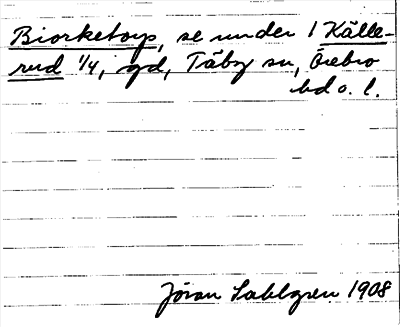 Biorketorp, se under 1 Källe-
rud 1/4, gd, Täby sn, Örebro
hd o. l.
Jöran Sahlgren 1908